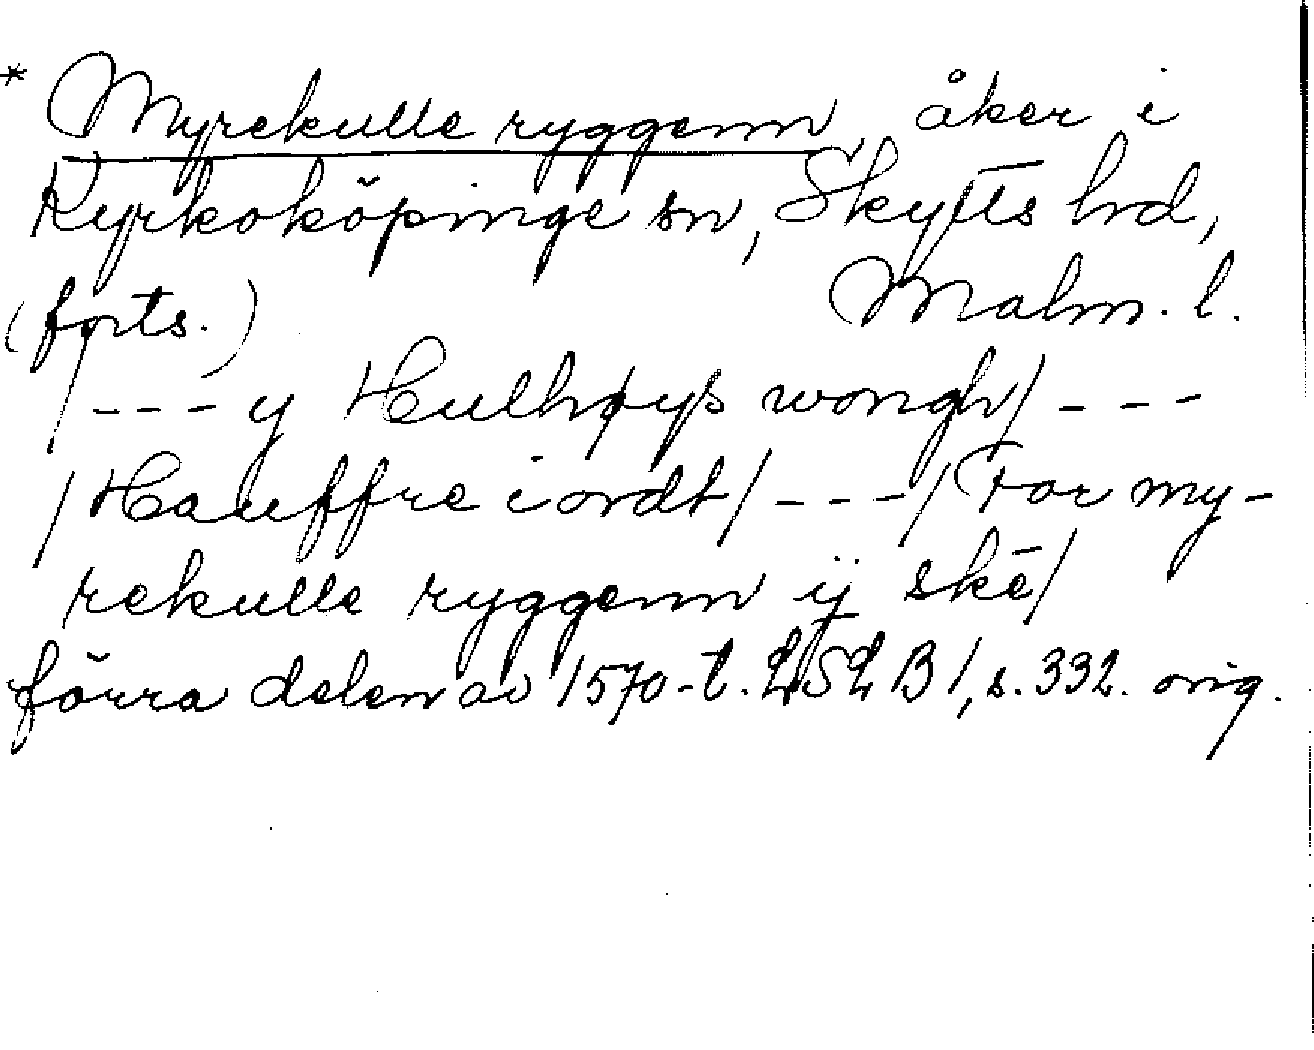 * Myrekulle ryggenn åker i
Kyrkoköpinge sn, Skytts hd,
(forts.) Malm. l.
/--- y Hulhøys wongh/ ---
/Hauffre iordt/ ---/ For my-
rekulle ryggenn ij skē/
förra delen av 1570-t. LSL B1, s. 332. orig.